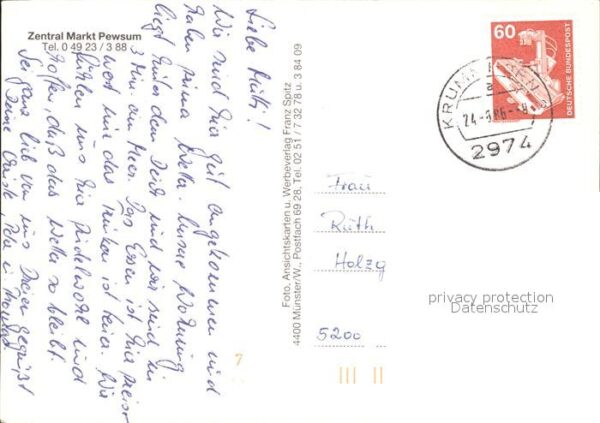 Zentral Markt Pewsum
Tel. 0 49 23 / 3 88
Liebe Ruth!
Wir sind hier gut angekommen und
haben prima Wetter. Unsere Wohnung
liegt hinter dem Deich und wir sind in
3 Min. am Meer. Das Essen ist hier preis
wert und das Trinken ist teuer. Wir
fühlen uns hier pudelwohl und
hoffen, daß das Wetter so bleibt.
Sei ganz lieb von uns Dreien gegrüßt
Deine
Foto, Ansichtskarten u. Werbeverlag Franz Spitz
4400 Münster/W., Postfach 69 28. Tel. 02 51 / 7 32 78 u. 3 84 09
60
DEUTSCHE BUNDESPOST
2974
Frau
Ruth
Holzg
5200
privacy protection
Datenschutz
7